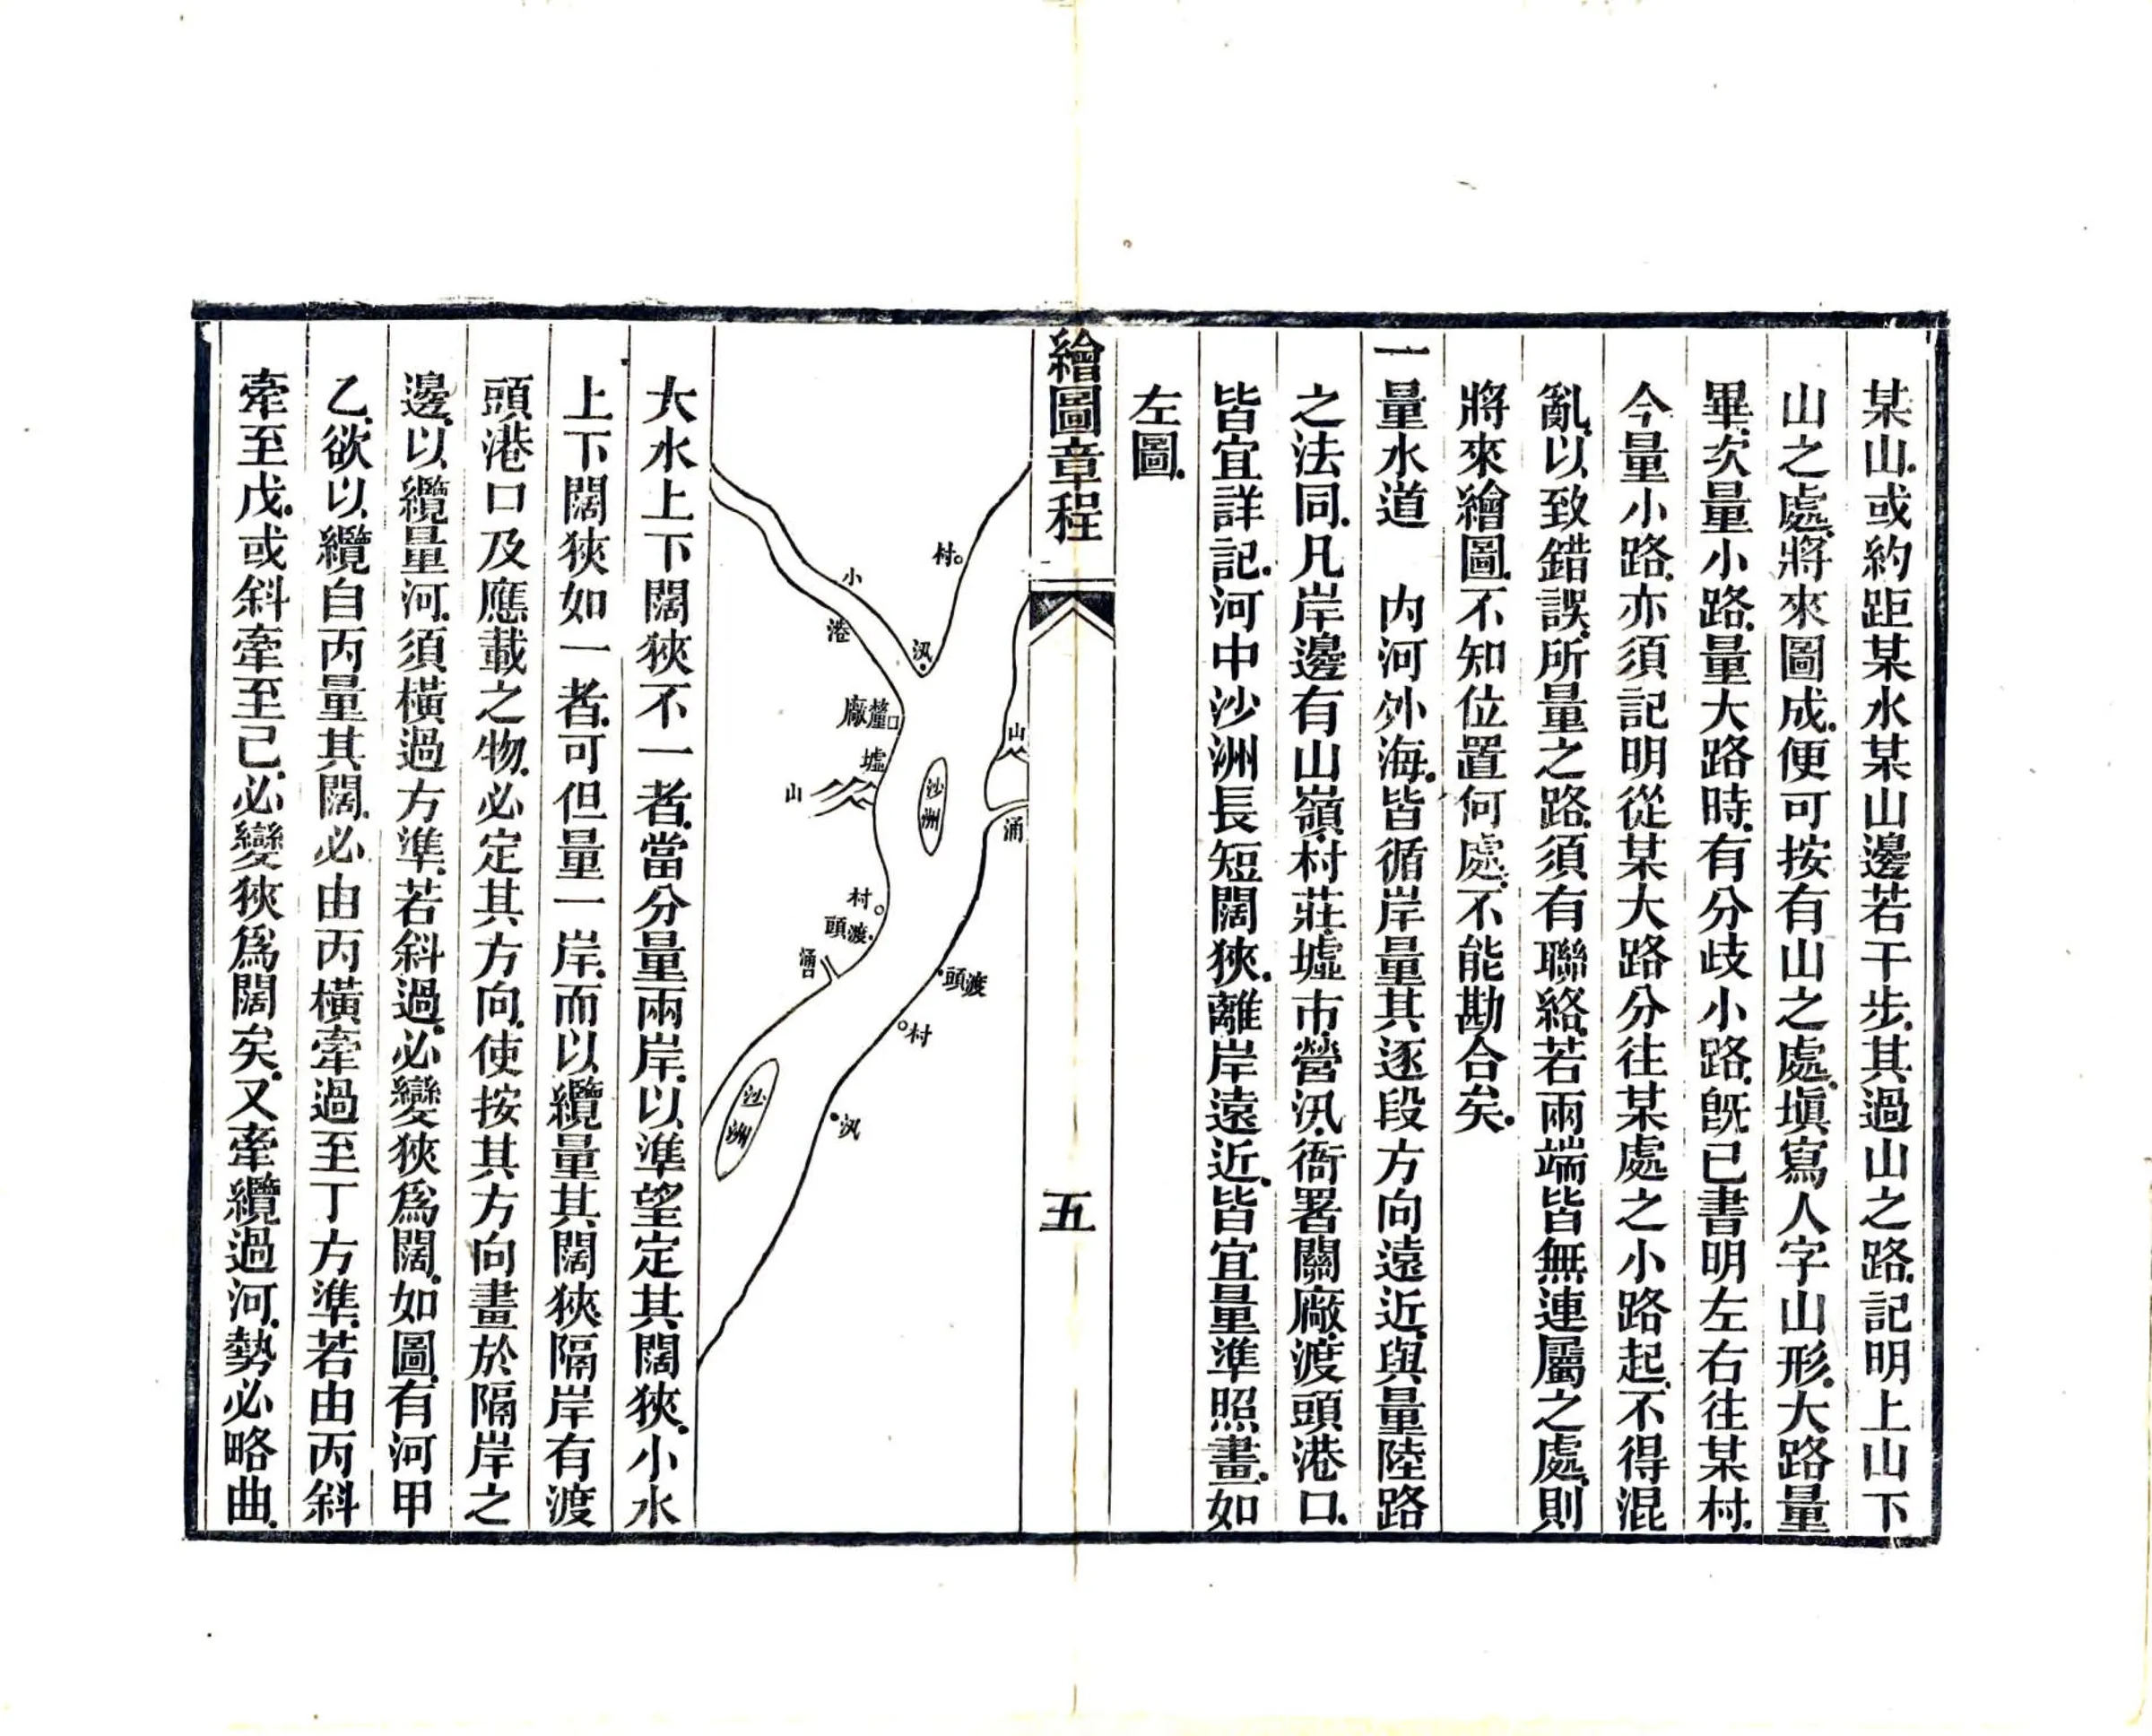 某山.或約距某水某山邊若干步.其過山之路.記明上山下
山之處.將來圖成.便可按有山之處.塡寫人字山形.大路量
畢.次量小路.量大路時.有分歧小路.旣已書明左右往某村.
今量小路.亦須記明從某大路分往某處之小路起.不得混
亂.以致錯誤.所量之路.須有聯絡.若兩端皆無連屬之處.則
將來繪圖.不知位置何處.不能勘合矣.
一量水道　內河外海.皆循岸量其逐段方向遠近.與量陸路
之法同.凡岸邊有山嶺.村莊.墟市.營汛.衙署.關廠.渡頭.港口.
皆宜詳記.河中沙洲長短闊狹.離岸遠近.皆宜量準照畫.如
左圖.
繪圖章程
五
村
小
港
汛
釐廠
墟
山
沙洲
山
涌
村
渡頭
涌口
渡頭
村
汛
沙洲
大水上下闊狹不一者.當分量兩岸.以準望定其闊狹.小水
上下闊狹如一者.可但量一岸.而以纜量其闊狹.隔岸有渡
頭港口及應載之物.必定其方向.使按其方向畫於隔岸之
邊.以纜量河.須橫過方準.若斜過.必變狹爲闊.如圖.有河甲
乙.欲以纜自丙量其闊.必由丙橫牽過至丁方準.若由丙斜
牽至戊.或斜牽至已.必變狹爲闊矣.又牽纜過河.勢必略曲.